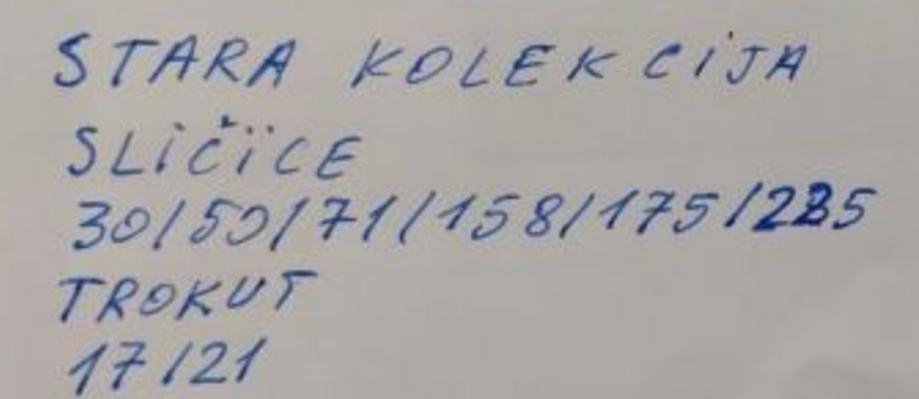 STARA KOLEKCIJA
SLIČICE
30/50/71/158/175/235
TROKUT
17/21